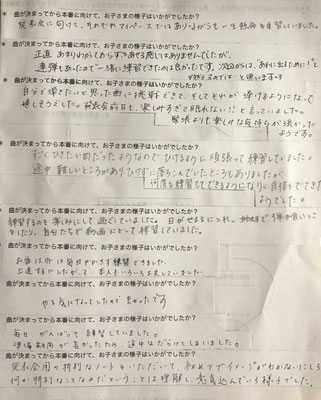 * 曲が決まってから本番に向けて、お子さまの様子はいかがでしたか?
発表会に向けて、それぞれマイペースではありながらも一生懸命に練習していました。
* 曲が決まってから本番に向けて、お子さまの様子はいかがでしたか?
正直 あまりわが子から すごく ある感じはありませんでしたが、
連弾もあったので一緒に練習できたのは良かったです。次回からは、
と思います
曲が決まってから本番に向けて、お子さまの様子はいかがでしたか?
自分で弾きたいと思った曲にも挑戦できて、そしてそれが弾けるようになって
嬉しそうでした。発表会前日も、楽しみすぎて眠れない!!と言っていました。
緊張よりも楽しみな気持ちが強かった
ようです。
* 曲が決まってから本番に向けて、お子さまの様子はいかがでしたか?
ひきたい曲だったようなので ひけるように頑張って練習していました。
途中難しいところがあり ひけずに落ちこんでいたところもありましたが
何度も練習してできるようになり自信もでてきた
ようでした。
* 曲が決まってから本番に向けて、お子さまの様子はいかがでしたか?
練習するのを楽しみにして過していました。日がせまるにつれ、
自分たちで動画にとって練習していました。
曲が決まってから本番に向けて、お子さまの様子はいかがでしたか?
以外は毎日かかさず練習できました。
上達するにしたがって、本人もいろいろ工夫していました。
曲が決まってから本番に向けて、お子さまの様子はいかがでしたか?
やる気になってしたので良かったです
曲が決まってから本番に向けて、お子さまの様子はいかがでしたか?
毎日、がんばって練習していました。
準備期間が長かったため、途中はだらけてしまいました。
曲が決まってから本番に向けて、お子さまの様子はいかがでしたか?
発表会用の特別なノートをいただいて、初めてでイメージがわかないにしろ
何か特別なことなのだということは理解し、意気込んでいる様子でした。